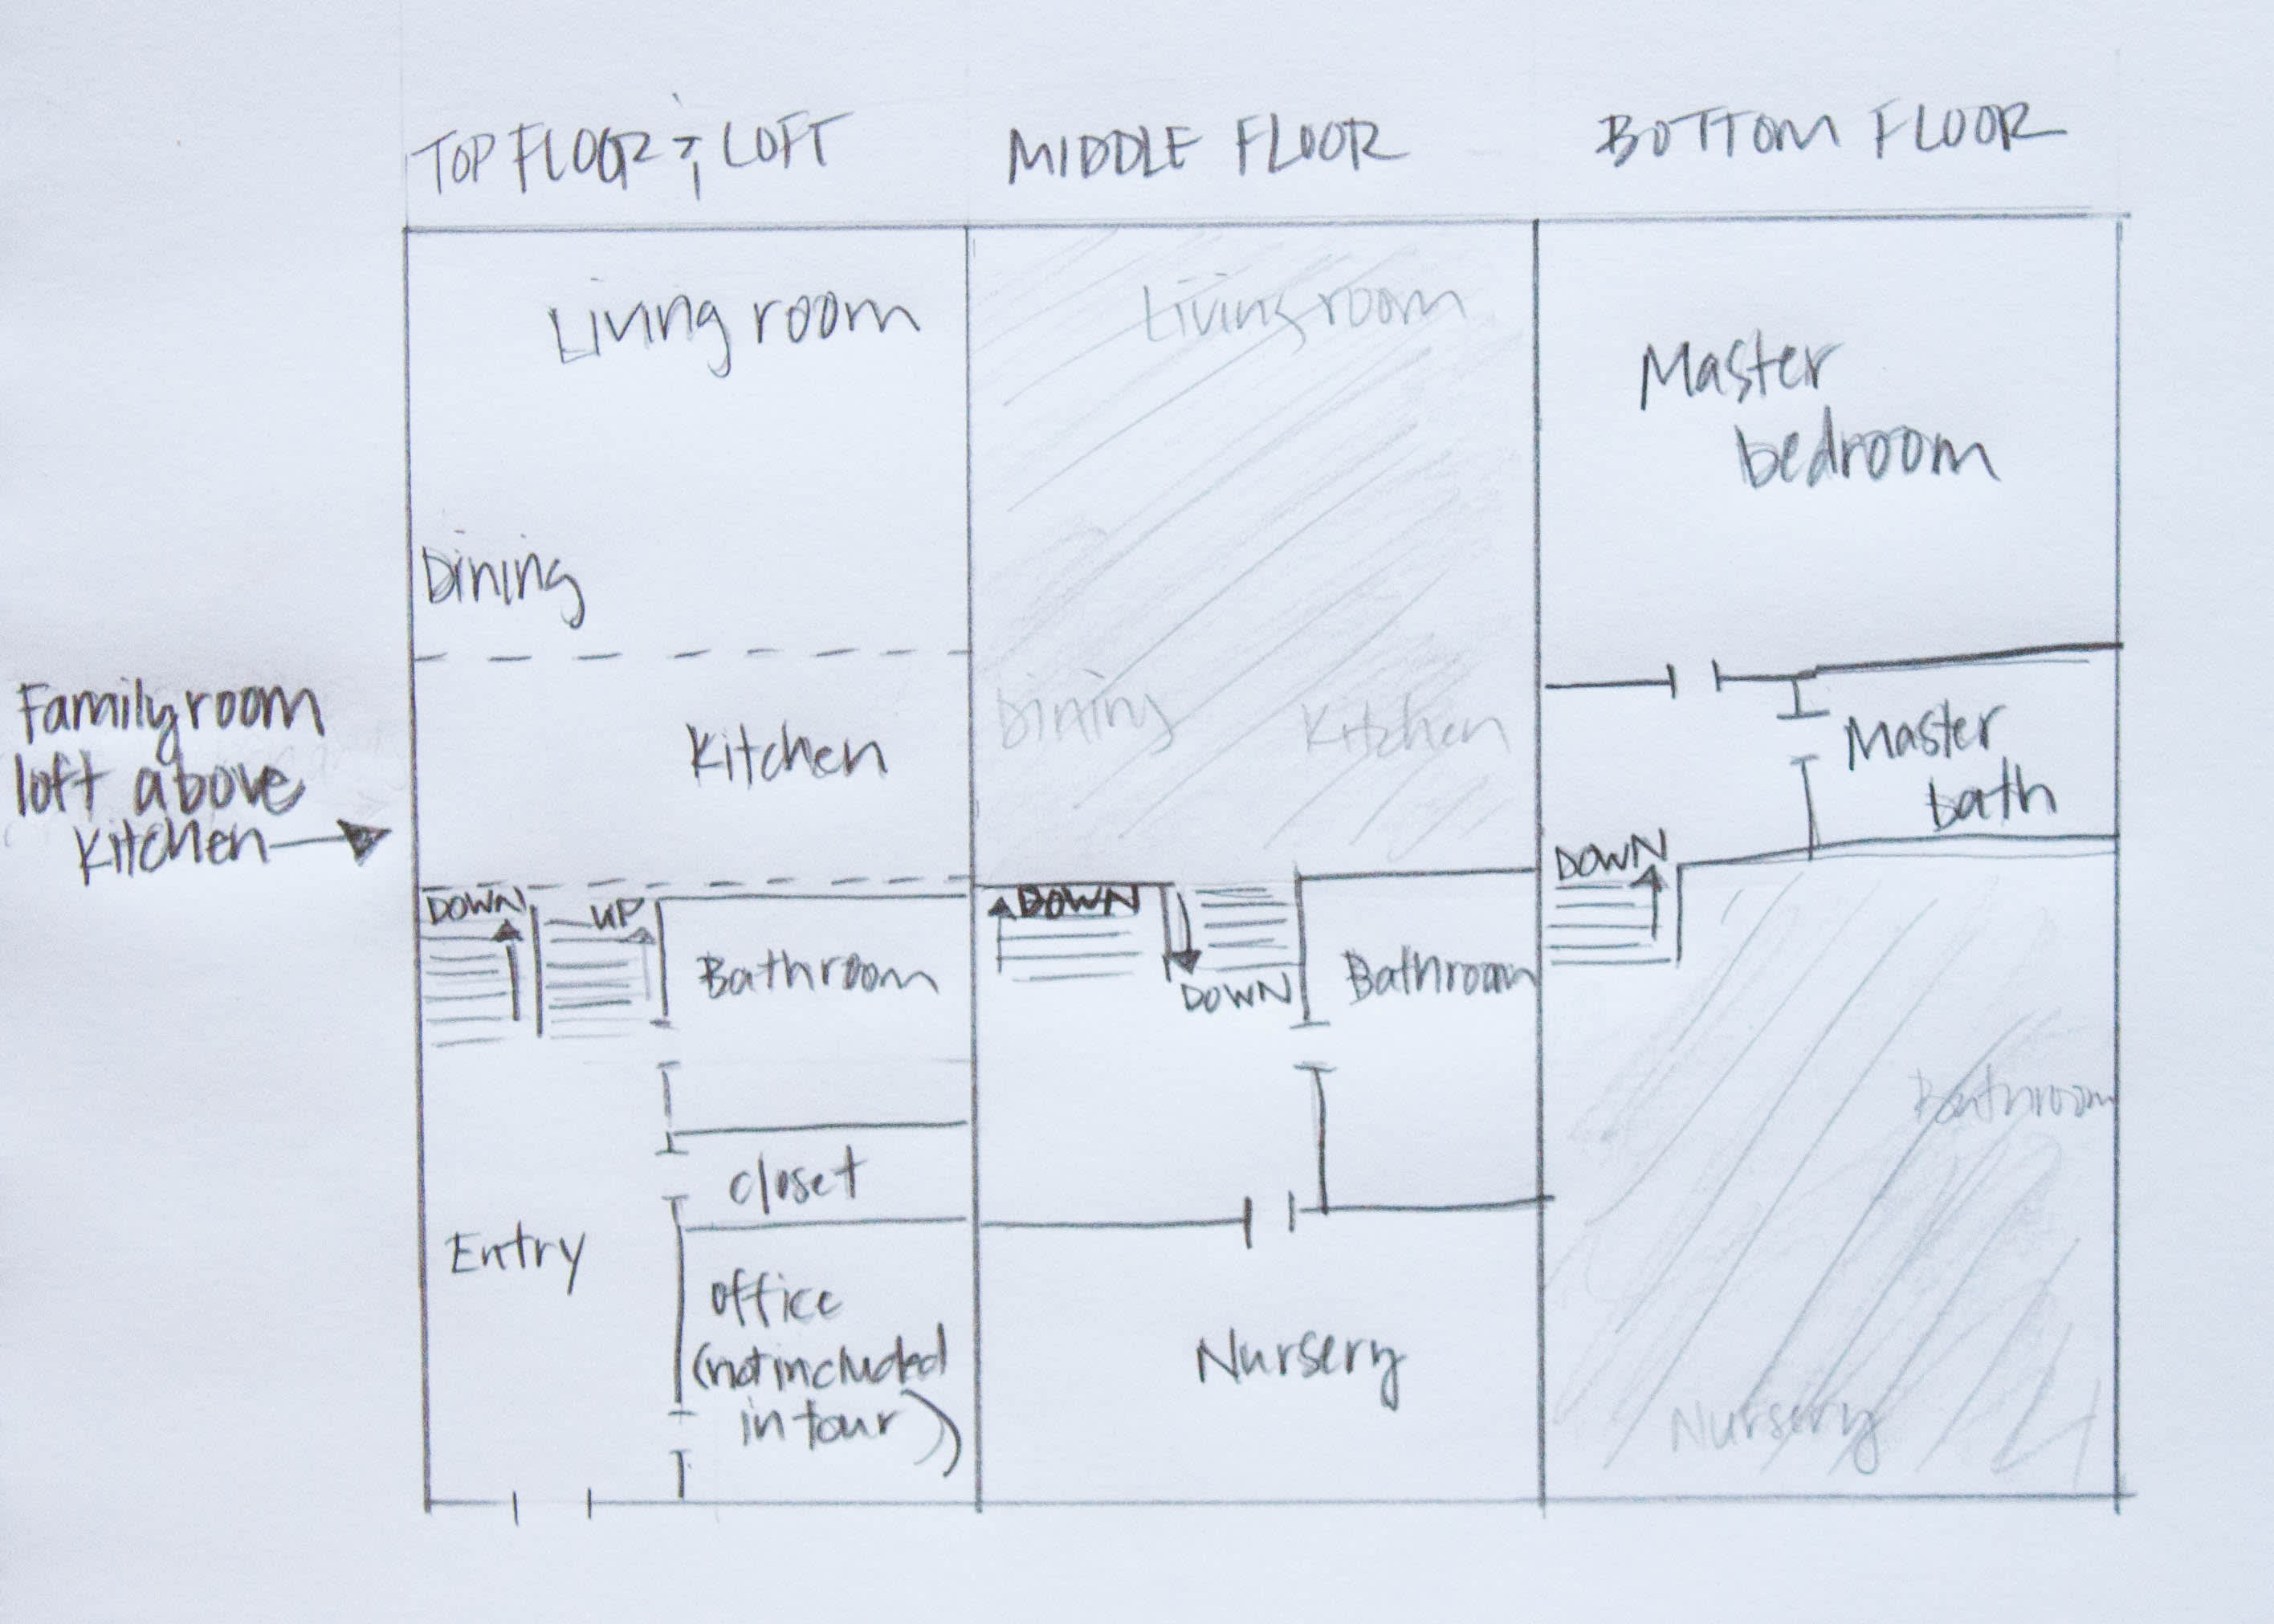 TOP FLOOR & LOFT
MIDDLE FLOOR
BOTTOM FLOOR
Living room
Dining
Family room
loft above
kitchen
Kitchen
DOWN
UP
Bathroom
closet
Entry
office
(not included
in tour)
Living room
Dining
Kitchen
DOWN
DOWN
Bathroom
Nursery
Master
bedroom
Master
bath
DOWN
Bathroom
Nursery